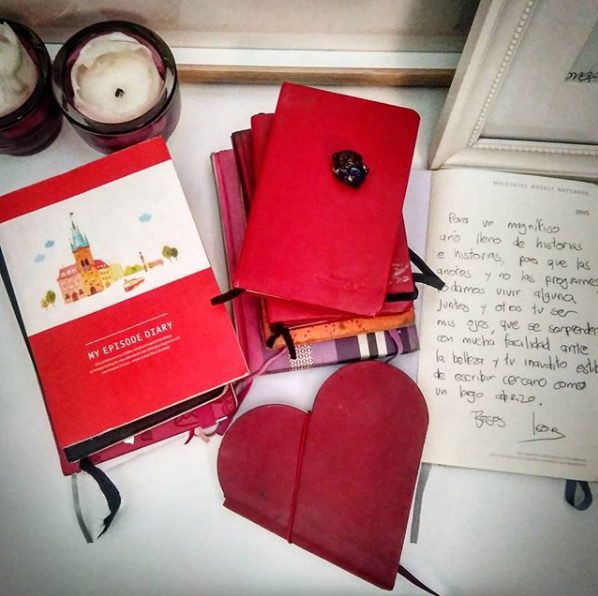 MY EPISODE DIARY
MOLESKINE WEEKLY NOTEBOOK
2015
Para un magnífico
año lleno de historias
e historias, para que las
anotes y no las programes
podamos vivir alguna
juntos y otros tu ser
mis ojos, que se sorprenden
con mucha facilidad ante
la belleza y tu inaudito estilo
de escribir cercano como
un largo abrazo.
Besos